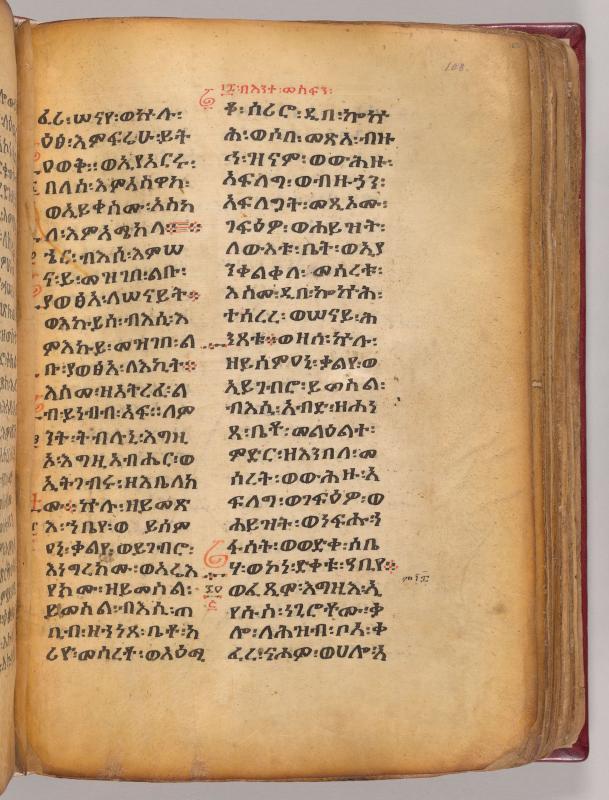 ፲፫፡በእንተ፡መስፍን፡
108.
ፈሪ፡ሠናየ፡ወኵሉ፡
ዕፅ፡እምፍሬሁ፡ይት
ዐወቅ፡፡ወኢየአርሩ፡
በለሰ፡እምአስዋክ፡
ወኢይቀስሙ፡አስካ
ለ፡እምአሜከላ፡፡
ኄር፡ብእሲ፡እምሠ
ናይ፡መዝገበ፡ልቡ፡
ያወፅእ፡ለሠናይት፡፡
ወእኩይሰ፡ብእሲ፡እ
ምእኩይ፡መዝገበ፡ል
ቡ፡ያወፅእ፡ለእኪት፡፡
እስመ፡ዘእትረፈ፡ል
ብ፡ይነብብ፡አፍ፡፡ለም
ንት፡ትብሉኒ፡እግዚ
ኦ፡እግዚአብሔር፡ወ
ኢትገብሩ፡ዘእቤለክ
ሙ፡፡ኵሉ፡ዘይመጽ
እ፡ኀቤየ፡ወይሰም
ዐኒ፡ቃልየ፡ወይገብሮ፡
እነግረክሙ፡ወአርእ
የክሙ፡ዘይመስል፡
ይመስል፡ብእሴ፡ጠ
ቢብ፡ዘሐነጸ፡ቤቶ፡አ
ርየ፡መሰረቶ፡ወአዕመ
ቆ፡ሰሪሮ፡ዲበ፡ኰኵ
ሕ፡ወሶበ፡መጽአ፡ብዙ
ኅ፡ዝናም፡ወውሕዙ፡
አፍላግ፡ወብዙኃን፡
አፍላግት፡መጺኦሙ፡
ገፍዕዎ፡ወሐይዝት፡
ለውእቱ፡ቤት፡ወኢያ
ንቀልቀለ፡መሰረቱ፡
እስመ፡ዲበ፡ኰኵሕ፡
ተሰረረ፡ወሠናይ፡ሕ
ንጸቱ፡፡ወዘሰ፡ኵሉ፡
ዘይሰምዐኒ፡ቃልየ፡ወ
ኢይገብሮ፡ይመስል፡
ብእሴ፡አብድ፡ዘሐነ
ጸ፡ቤቶ፡መልዕልተ፡
ምድር፡ዘእንበለ፡መ
ሰረት፡ወውሕዙ፡አ
ፍላግ፡ወገፍዕዎ፡ወ
ሐይዝት፡ወነፍሑ፡ነ
ፋሳት፡ወወድቀ፡ሶቤ
ሃ፡ወኮነ፡ድቀቱ፡ዓቢየ፡፡
ወፈጺሞ፡እግዚእ፡ኢ
የሱስ፡ነጊሮቶሙ፡ቃ
ሎ፡ለሕዝብ፡ቦአ፡ቅ
ፈረ፡ናሖም፡ወሀሎ፡አ